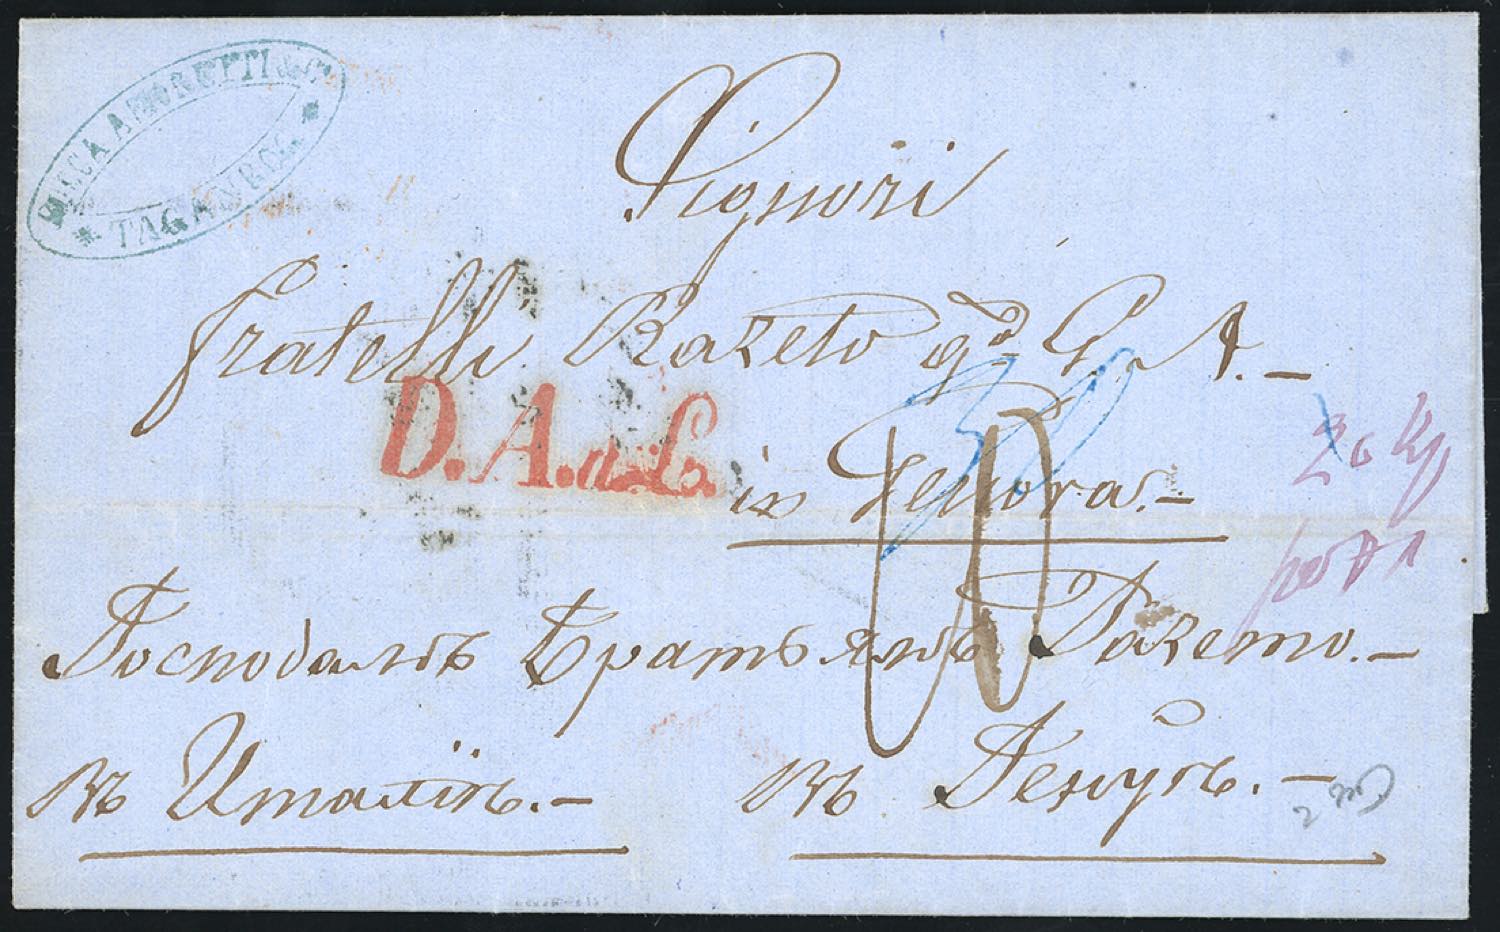 AMORETTI & Cº
* TAGANROG. *
Signori
Fratelli Razeto qᵐ G. A. —
D. A. a. L.
in Genova. —
Господамъ Братьямъ Разето. —
въ Италію. —
въ Генуѣ. —